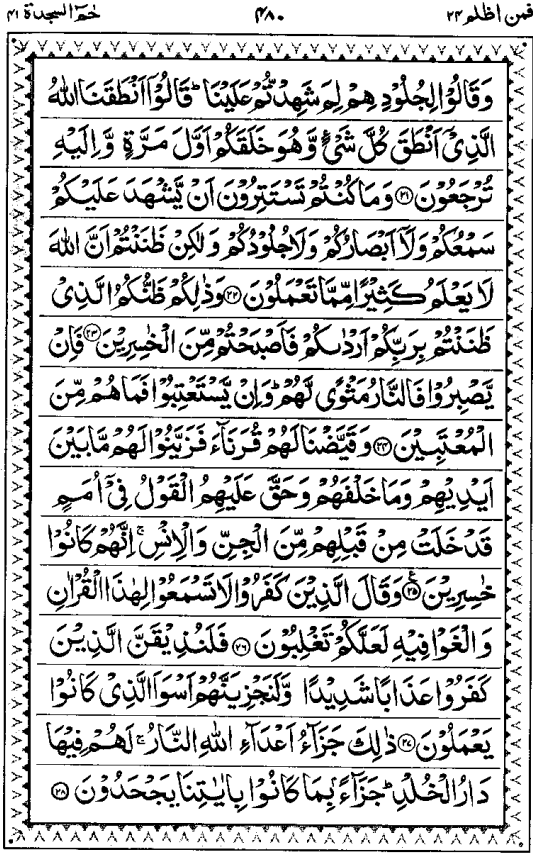 فمن اظلم ۲۴ ۴۸۰ حٰمٓ السجدة ۴۱
وَقَالُوْا لِجُلُوْدِهِمْ لِمَ شَهِدْتُّمْ عَلَيْنَا ؕ قَالُوْۤا اَنْطَقَنَا اللّٰهُ
الَّذِىْۤ اَنْطَقَ كُلَّ شَىْءٍ وَّهُوَ خَلَقَكُمْ اَوَّلَ مَرَّةٍ وَّاِلَيْهِ
تُرْجَعُوْنَ ﴿۲۱﴾ وَمَا كُنْتُمْ تَسْتَتِرُوْنَ اَنْ يَّشْهَدَ عَلَيْكُمْ
سَمْعُكُمْ وَلَاۤ اَبْصَارُكُمْ وَلَا جُلُوْدُكُمْ وَلٰكِنْ ظَنَنْتُمْ اَنَّ اللّٰهَ
لَا يَعْلَمُ كَثِيْرًا مِّمَّا تَعْمَلُوْنَ ﴿۲۲﴾ وَذٰلِكُمْ ظَنُّكُمُ الَّذِىْ
ظَنَنْتُمْ بِرَبِّكُمْ اَرْدٰىكُمْ فَاَصْبَحْتُمْ مِّنَ الْخٰسِرِيْنَ ﴿۲۳﴾ فَاِنْ
يَّصْبِرُوْا فَالنَّارُ مَثْوًى لَّهُمْ ؕ وَاِنْ يَّسْتَعْتِبُوْا فَمَا هُمْ مِّنَ
الْمُعْتَبِيْنَ ﴿۲۴﴾ وَقَيَّضْنَا لَهُمْ قُرَنَآءَ فَزَيَّنُوْا لَهُمْ مَّا بَيْنَ
اَيْدِيْهِمْ وَمَا خَلْفَهُمْ وَحَقَّ عَلَيْهِمُ الْقَوْلُ فِىْۤ اُمَمٍ
قَدْ خَلَتْ مِنْ قَبْلِهِمْ مِّنَ الْجِنِّ وَالْاِنْسِ ۚ اِنَّهُمْ كَانُوْا
خٰسِرِيْنَ ﴿۲۵﴾ وَقَالَ الَّذِيْنَ كَفَرُوْا لَا تَسْمَعُوْا لِهٰذَا الْقُرْاٰنِ
وَالْغَوْا فِيْهِ لَعَلَّكُمْ تَغْلِبُوْنَ ﴿۲۶﴾ فَلَنُذِيْقَنَّ الَّذِيْنَ
كَفَرُوْا عَذَابًا شَدِيْدًا وَّلَنَجْزِيَنَّهُمْ اَسْوَاَ الَّذِىْ كَانُوْا
يَعْمَلُوْنَ ﴿۲۷﴾ ذٰلِكَ جَزَآءُ اَعْدَآءِ اللّٰهِ النَّارُ ۚ لَهُمْ فِيْهَا
دَارُ الْخُلْدِ ؕ جَزَآءًۢ بِمَا كَانُوْا بِاٰيٰتِنَا يَجْحَدُوْنَ ﴿۲۸﴾